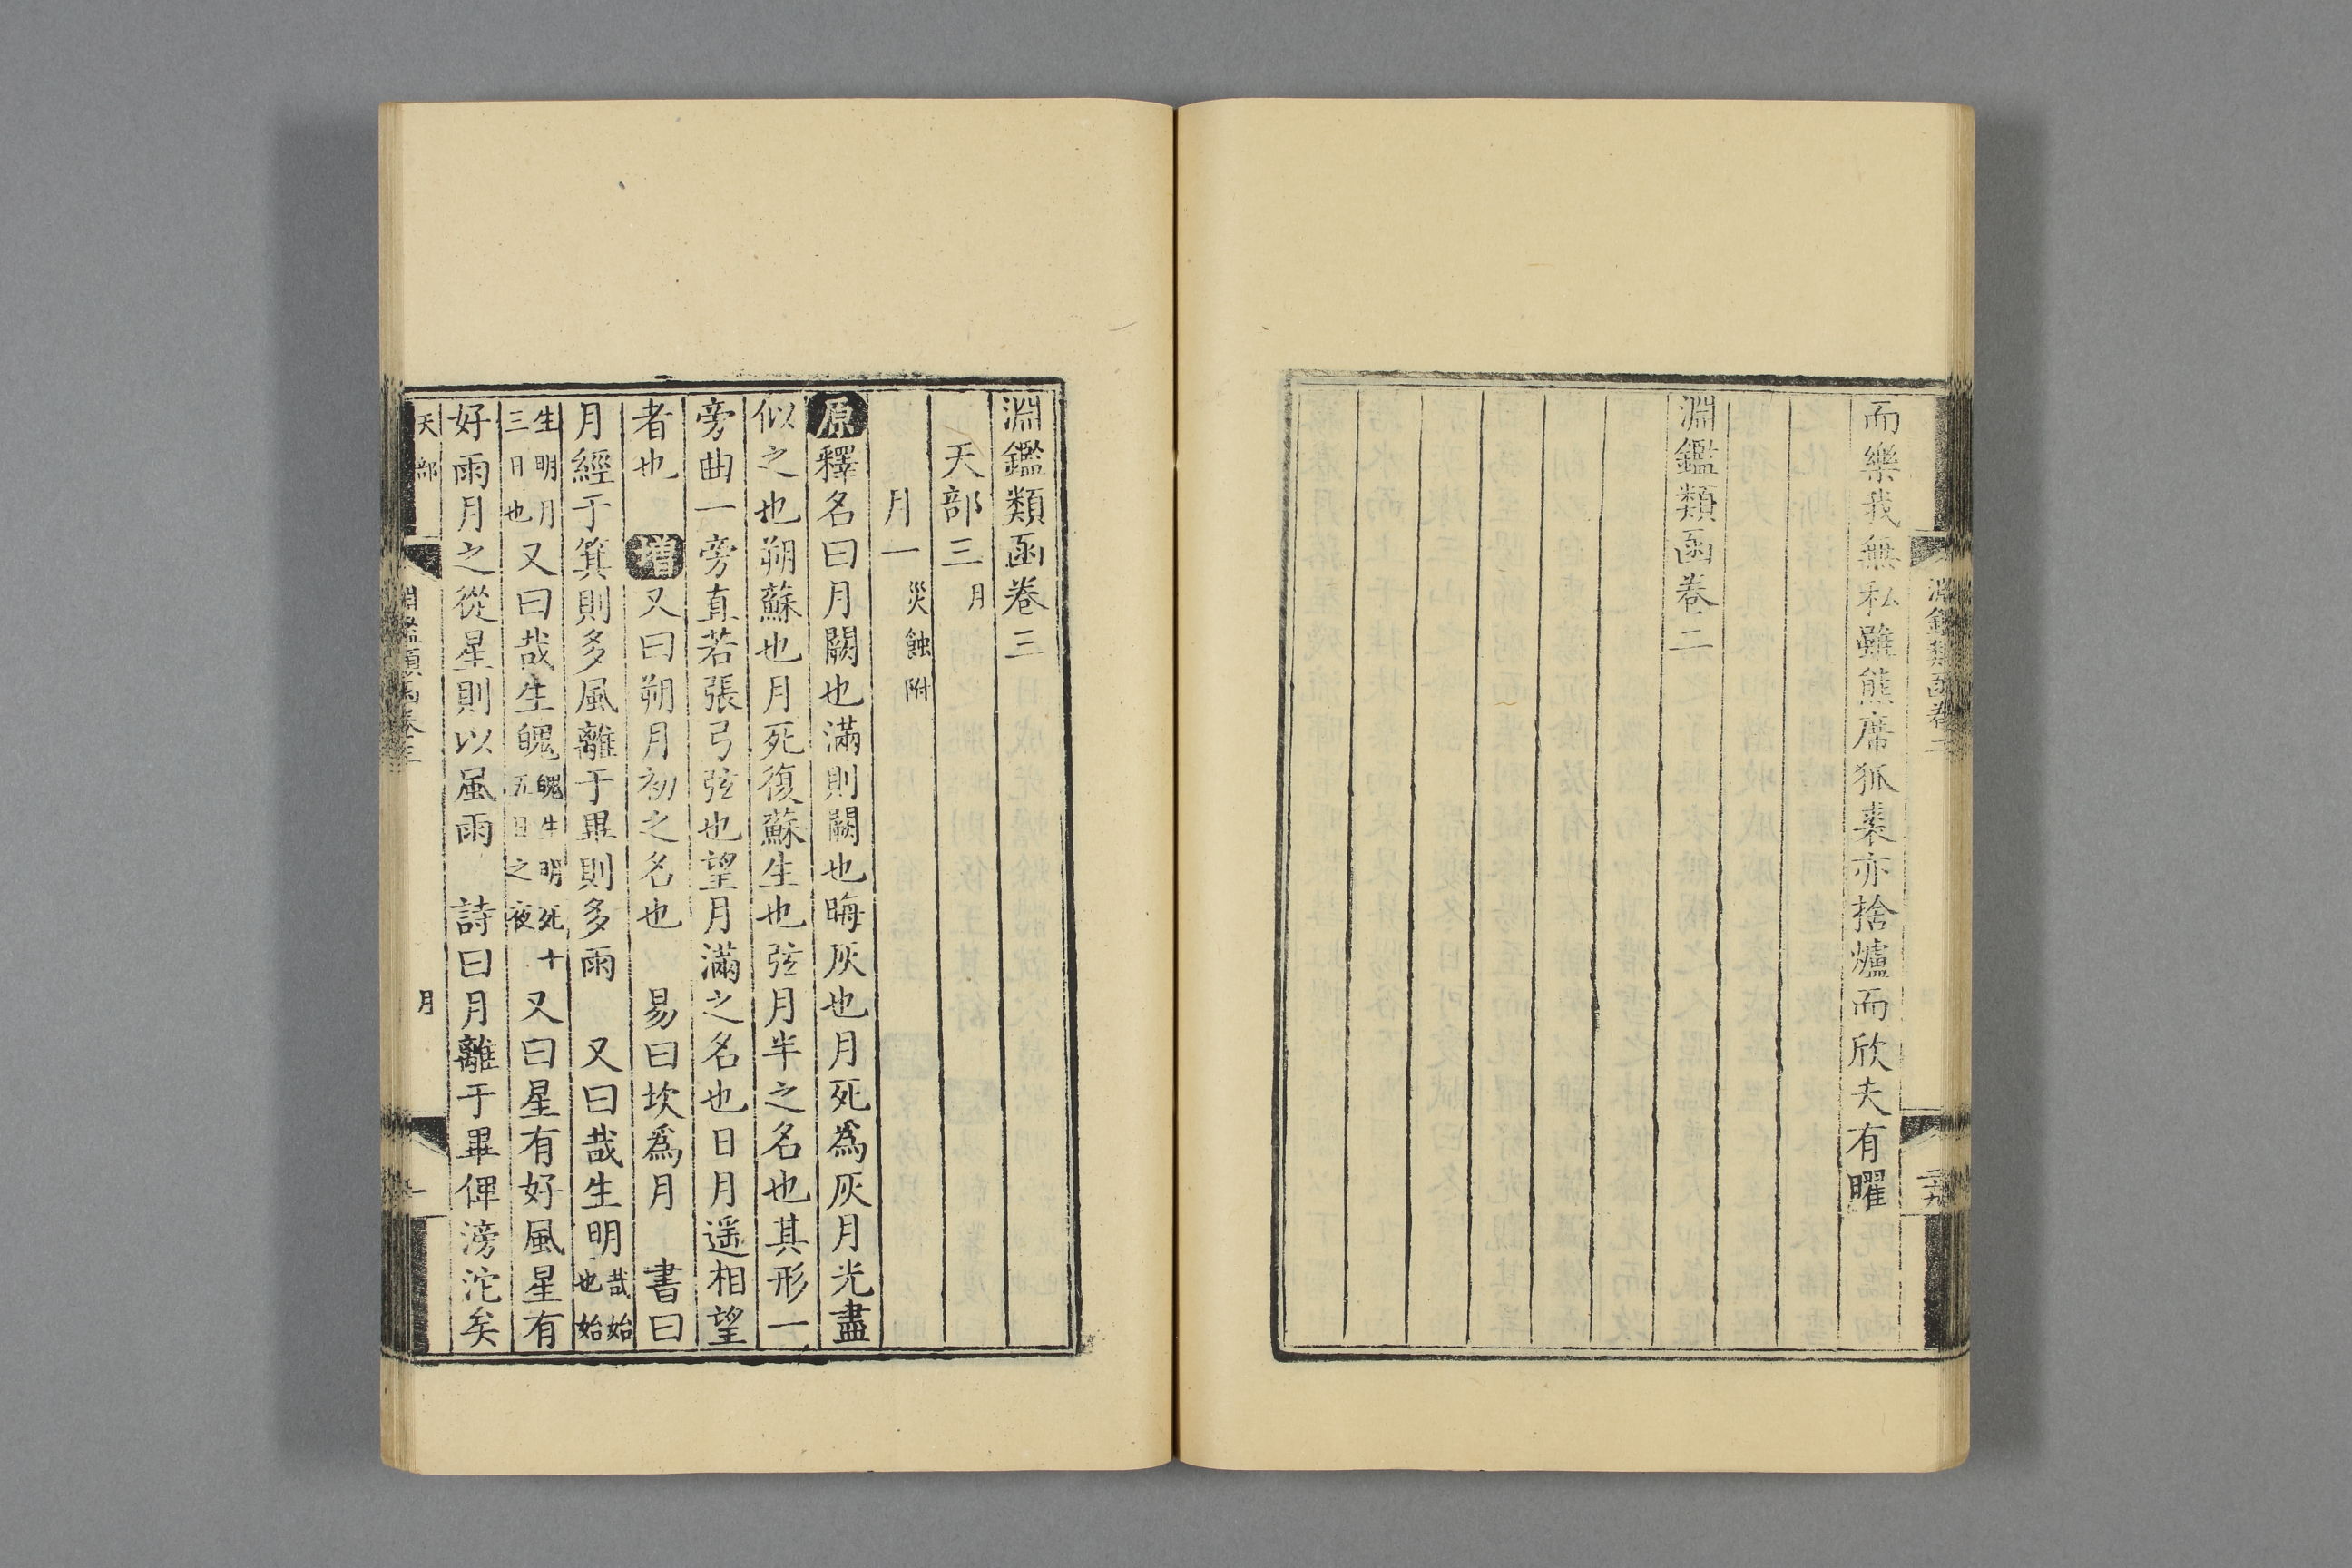 而樂我無私雖熊席狐裘亦捨爐而欣夫有曜
淵鑑類函卷二
淵鑑類函卷二
二十九
淵鑑類函卷三
天部三 月
月一 災蝕附
原釋名曰月闕也滿則闕也晦灰也月死爲灰月光盡
似之也朔蘇也月死復蘇生也弦月半之名也其形一
旁曲一旁直若張弓弦也望月滿之名也日月遥相望
者也 增又曰朔月初之名也 易曰坎爲月 書曰
月經于箕則多風離于畢則多雨 又曰哉生明哉始也始
生明月三日也又曰哉生魄魄生明死十五日之夜又曰星有好風星有
好雨月之從星則以風雨 詩曰月離于畢俾滂沱矣
天部 淵鑑類函卷三 月 一